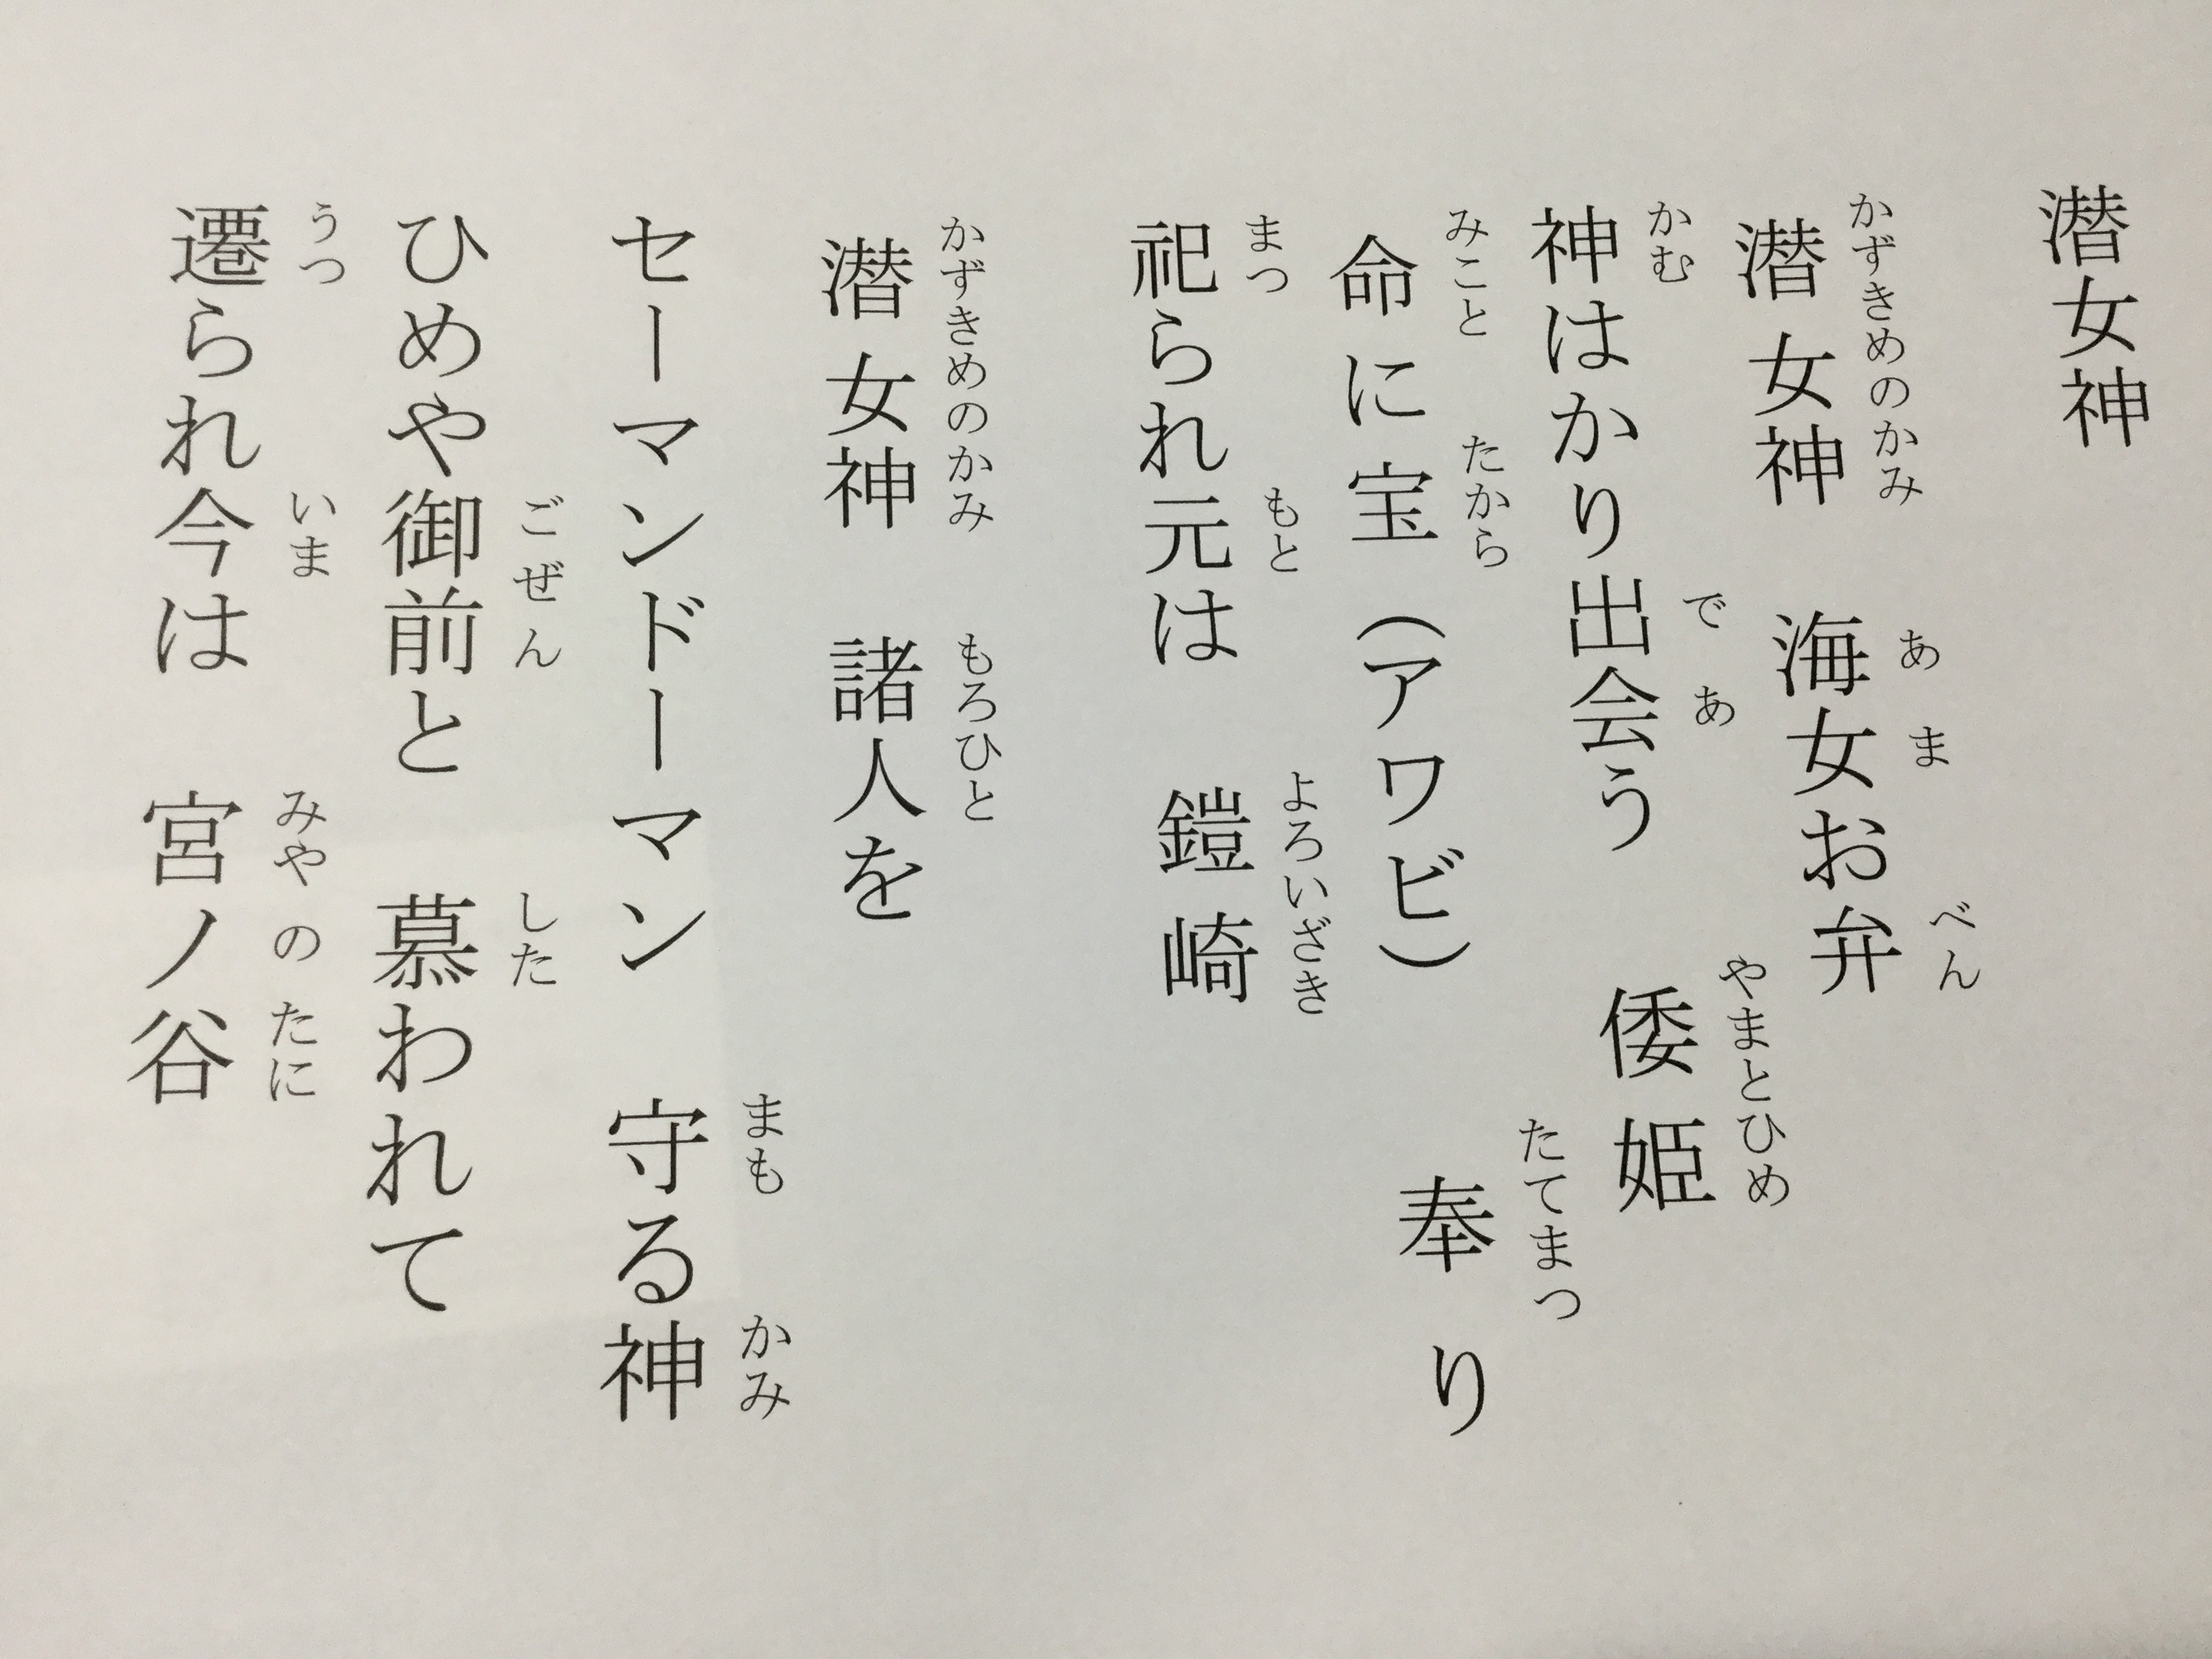 潜女神
潜女神　海女お弁
かずきめのかみ　あま　べん
神はかり出会う　倭姫
かむ　であ　やまとひめ
命に宝（アワビ）　奉り
みこと　たから　たてまつ
祀られ元は　鎧崎
まつ　もと　よろいざき
潜女神　諸人を
かずきめのかみ　もろひと
セーマンドーマン　守る神
まも　かみ
ひめや御前と　慕われて
ごぜん　した
遷られ今は　宮ノ谷
うつ　いま　みや　の　たに